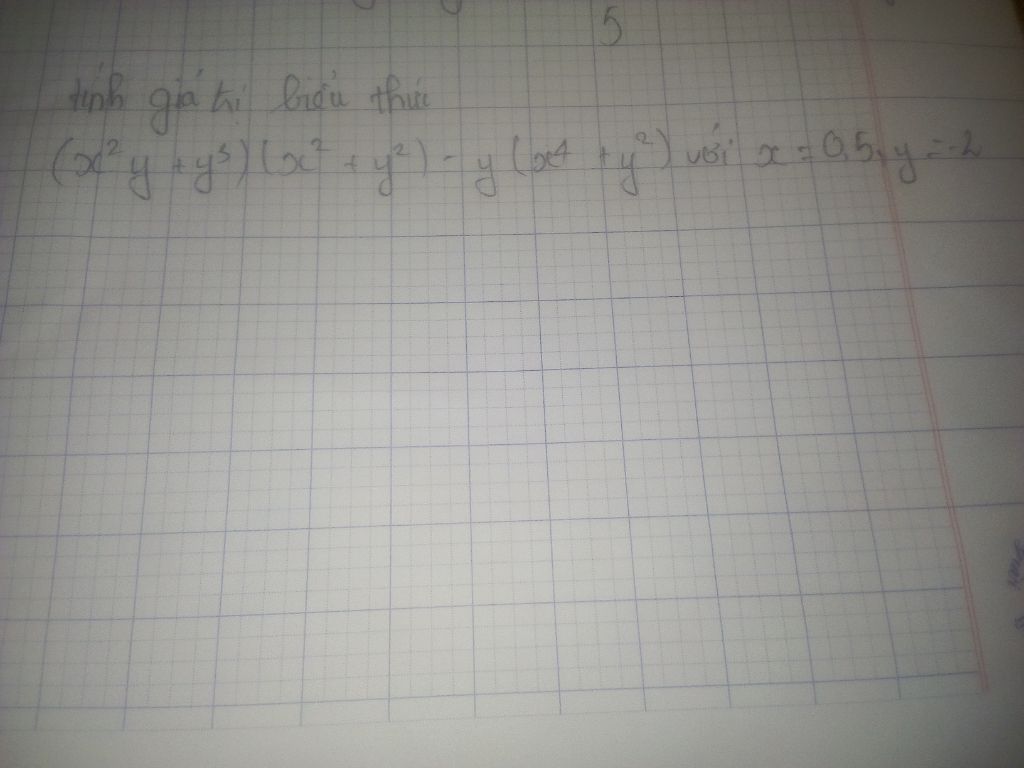 5
tính giá trị biểu thức
(x²y + y³)(x² + y²) - y(x⁴ + y²) với x = 0,5, y = -2